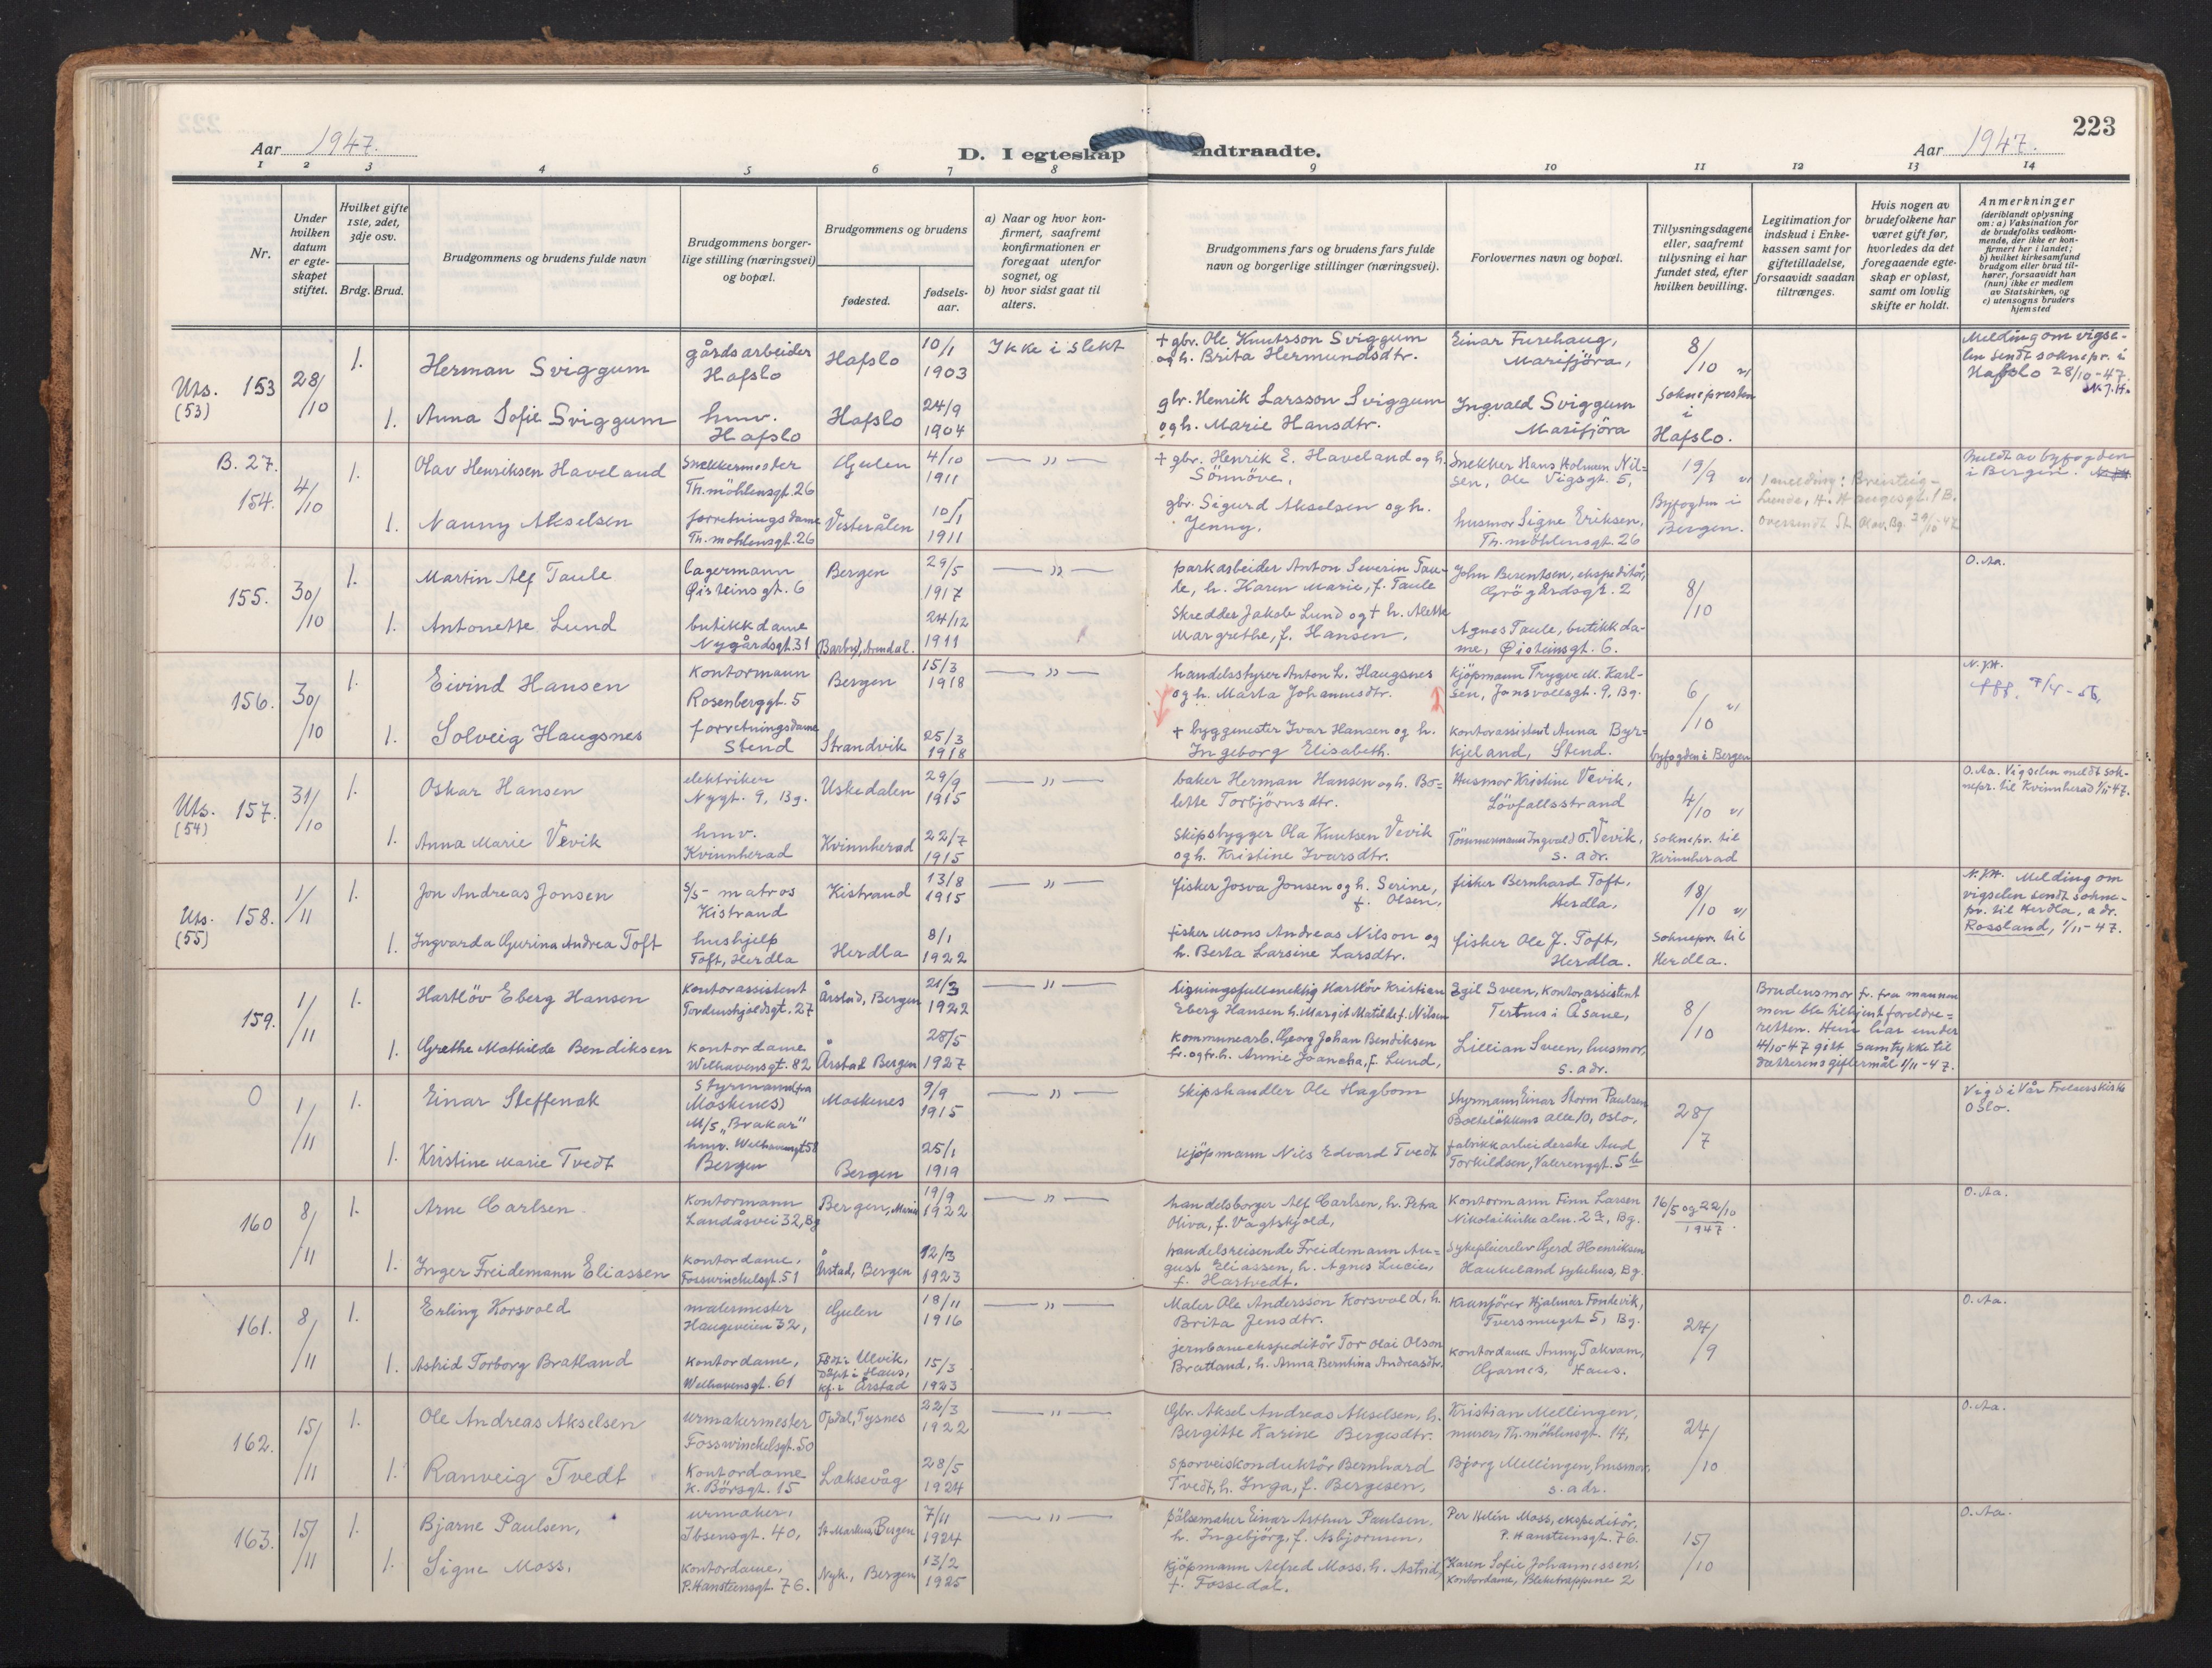 223
Aar 1947.
D. I egteskap indtraadte.
Aar 1947.
1 2 3 4 5 6 7 8 9 10 11 12 13 14
Nr.
Under hvilken datum er egteskapet stiftet.
Hvilket gifte 1ste, 2det, 3dje osv.
Brdg. Brud.
Brudgommens og brudens fulde navn
Brudgommens borgerlige stilling (næringsvei) og bopæl.
Brudgommens og brudens
fødested.
fødselsaar.
a) Naar og hvor konfirmert, saafremt konfirmationen er foregaat utenfor sognet, og
b) hvor sidst gaat til alters.
Brudgommens fars og brudens fars fulde navn og borgerlige stillinger (næringsvei).
Forlovernes navn og bopæl.
Tillysningsdagene eller, saafremt tillysning ei har fundet sted, efter hvilken bevilling.
Legitimation for indskud i Enkekassen samt for giftetilladelse, forsaavidt saadan tiltrænges.
Hvis nogen av brudefolkene har været gift før, hvorledes da det foregaaende egteskap er opløst, samt om lovlig skifte er holdt.
Anmerkninger
(deriblandt oplysning om: a) Vaksination for de brudefolks vedkommende, der ikke er konfirmert her i landet; b) hvilket kirkesamfund brudgom eller brud tilhører, forsaavidt han (hun) ikke er medlem av Statskirken, og c) utensogns bruders hjemsted
Uts. (53) 153 28/10 1. Herman Sviggum gårdsarbeider Hafslo Hafslo 10/1 1903 Ikke i slekt + gbr. Ole Knutsson Sviggum og h. Brita Hermundsdtr. Einar Furehaug, Marifjöra, 8/10 Melding om vigselen sendt soknepr. i Hafslo 28/10-47.
1. Anna Sofie Sviggum hmv. Hafslo Hafslo 24/9 1904 gbr. Henrik Larsson Sviggum og h. Marie Hansdtr. Ingvald Sviggum Marifjöra Soknepresten i Hafslo.
B. 27. 154. 4/10 1. Olav Henriksen Haveland Snekkermester Th. möhlensgt. 26 Gulen 4/10 1911 — " — + gbr. Henrik E. Haveland og h. Sönnöve, Snekker Hans Holmen Nilsen, Ole Vigsgt. 5, 19/9 Meldt av byfogden i Bergen.
1. Nanny Akselsen forretningsdame Th. möhlensgt. 26 Vesterålen 10/1 1911 gbr. Sigurd Akselsen og h. Jenny. husmor Signe Eriksen, Th. möhlensgt. 26 Byfogden i Bergen.
155. 30/10 1. Martin Alf Taule lagermann Øisteinsgt. 6 Bergen 29/5 1917 — " — parkarbeider Anton Severin Taule, h. Karen Marie, f. Taule John Berentsen, ekspeditör, Grögårdsgt. 2 8/10 O. Aa.
1. Antonette Lund butikkdame Nygårdsgt. 31 Barbu, Arendal. 24/12 1911 Skredder Jakob Lund og + h. Alette Margrethe, f. Hansen. Agnes Taule, butikkdame, Øisteinsgt. 6.
156. 30/10 1. Eivind Hansen Kontormann Rosenberggt. 5 Bergen 15/3 1918 — " — handelsstyrer Anton L. Haugsnes og h. Marta Johannesdtr. Kjöpmann Trygve M. Karlsen, Jonsvollsgt. 9, Bg. 6/10 N. J. H. 7/4-56.
1. Solveig Haugsnes forretningsdame Stend Strandvik 25/3 1918 + byggmester Ivar Hansen og h. Ingeborg Elisabeth. Kontorassistent Anna Byrkjeland, Stend. byfogden i Bergen
Uts. (54) 157. 31/10 1. Oskar Hansen elektriker Nygt. 9, Bg. Uskedalen 29/9 1915 — " — baker Herman Hansen og h. Bolette Torbjörnsdtr. Husmor Kristine Vevik, Lövfallsstrand 4/10 O. Aa. Vigselen meldt soknepr. til Kvinnherad 1/11 47.
1. Anna Marie Vevik hmv. Kvinnherad Kvinnherad 22/7 1915 Skipsbygger Ola Knutsen Vevik og h. Kristine Ivarsdtr. Tömmermann Ingvald O. Vevik, s. adr. Soknepr. til Kvinnherad
Uts. (55) 158. 1/11 1. Jon Andreas Jonsen S/S- matros Kistrand Kistrand 13/8 1915 — " — fisker Josva Jonsen og h. Serine, f. Olsen, fisker Bernhard Toft, Herdla, 18/10 N. J. H. Melding om vigselen sendt soknepr. til Herdla, adr. Rossland, 1/11-47.
1. Ingvarda Gurina Andrea Toft hushjelp Toft, Herdla Herdla 8/1 1922 fisker Mons Andreas Nilson og h. Berta Larsine Larsdtr. fisker Ole J. Toft, Herdla. Soknepr. til Herdla.
159. 1/11 1. Hartlöv Eberg Hansen Kontorassistent Tordenskjoldsgt. 27 Årstad, Bergen 21/3 1922 — " — ligningsfullmektig Hartlöv Kristian Eberg Hansen h. Margit Matilde f. Nilsen Egil Sveen, Kontorassistent Tertnes i Åsane, 8/10 Brudens mor fr. fra mannen men ble tilkjent foreldreretten. Hun har under 4/10-47 gitt samtykke til datterens giftermål 1/11-47.
1. Grethe Mathilde Bendiksen Kontordame Welhavensgt. 82 Årstad Bergen 28/5 1927 Kommunearb. Georg Johan Bendiksen fr. og fr. h. Annie Joancha, f. Lund, Lillian Sveen, husmor, s. adr.
0 1/11 1. Einar Steffenak Styrmann (fra Moskenes) M/S „Brakar" Moskenes 9/9 1915 — " — Skipshandler Ole Hagbom Styrmann Einar Storm Paulsen Bolteløkkens alle 10, Oslo, 28/7 Vigd i Vår Frelserskirke Oslo.
1. Kristine Marie Tvedt hmv. Welhavensgt 58 Bergen Bergen 25/1 1919 Kjöpmann Nils Edvard Tvedt fabrikkarbeiderske Aud Torkildsen, Valerenggt. 5b
160 8/11 1. Arne Carlsen Kontormann Landåsvei 32, Bg Bergen, Marie 19/9 1922 — " — handelsborger Alf Carlsen, h. Petra Oliva, f. Vagtskjold, Kontormann Finn Larsen Nikolaikirkealm. 2a, Bg. 16/5 og 22/10 1947. O. Aa.
1. Inger Freidemann Eliassen Kontordame, Fosswinckelsgt. 51 Årstad, Bergen 12/3 1923 handelsreisende Freidemann August Eliassen, h. Agnes Lucie, f. Hartvedt. Sykepleierelev Gerd Henriksen Haukeland sykehus, Bg.
161. 8/11 1. Erling Korsvold malermester Haugeveien 32, Gulen 18/11 1916 — " — Maler Ole Andersson Korsvold, h. Brita Jensdtr. Kranförer Hjalmar Fondevik, Tversmuget 5, Bg. 24/9 O. Aa.
1. Astrid Torborg Bratland Kontordame, Welhavensgt. 61 Född i Ulvik, Döpt i Haus, kf. i Årstad 15/3 1923 jernbaneekspeditör Tor Olai Olson Bratland, h. Anna Berntina Andreasdtr. Kontordame Anny Takvam, Garnes, Haus.
162. 15/11 1. Ole Andreas Akselsen urmakermester Fosswinckelsgt. 50 Opdal, Tysnes 22/3 1922 — " — Gbr. Aksel Andreas Akselsen, h. Bergitte Karine Bergesdtr. Kristian Mellingen, murer, Th. möhlensgt. 14, 24/10 O. Aa.
1. Ranveig Tvedt Kontordame K. Börsgt. 15 Laksevåg 28/5 1924 Sporveiskonduktör Bernhard Tvedt, h. Inga, f. Bergesen, Bjorg Mellingen, husmor, s. adr.
163. 15/11 1. Bjarne Paulsen, urmaker, Ibsensgt. 40, St Markus, Bergen 7/11 1924 — " — pölsemaker Einar Arthur Paulsen, h. Ingebjörg, f. Asbjornsen, Per Helin Moss, ekspeditör, P. Hanstensgt. 76. 15/10 O. Aa.
1. Signe Moss. Kontordame, P. Hanstensgt. 76. Nyk., Bergen 13/2 1925 Kjöpmann Alfred Moss, h. Astrid, f. Fossedal. Karen Sofie Johannessen, Kontordame, Bleketrappene 2